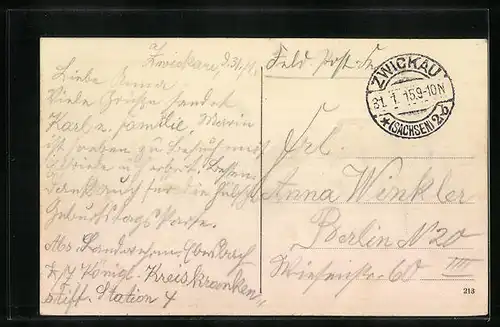 Zwickau, d. 31.1.
Liebe Anna
Viele Grüsse sendet
Karl u. Familie,
ist eben zu Besuch
Besten
Dank auch für die
Geburtstags Karte.
Abs. Landwehrm.
Königl. Kreiskranken
stift. Station 4
Feld. Postk.
ZWICKAU
31. 1. 15. 9-10N
*(SACHSEN)2b
Frl.
Anna Winkler
Berlin N 20
Wiesenstr. 60 IIII
213